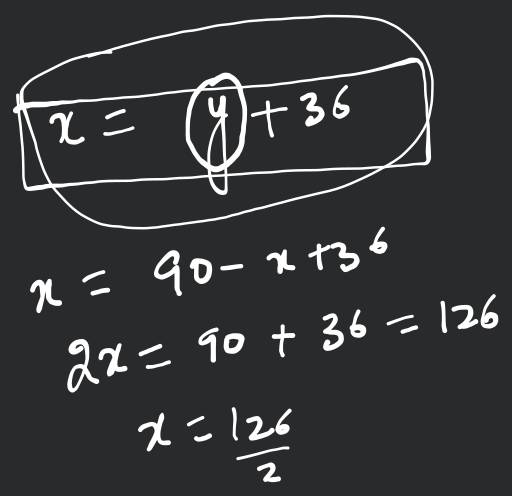 x = y + 36
x = 90 - x + 36
2x = 90 + 36 = 126
x = 126/2